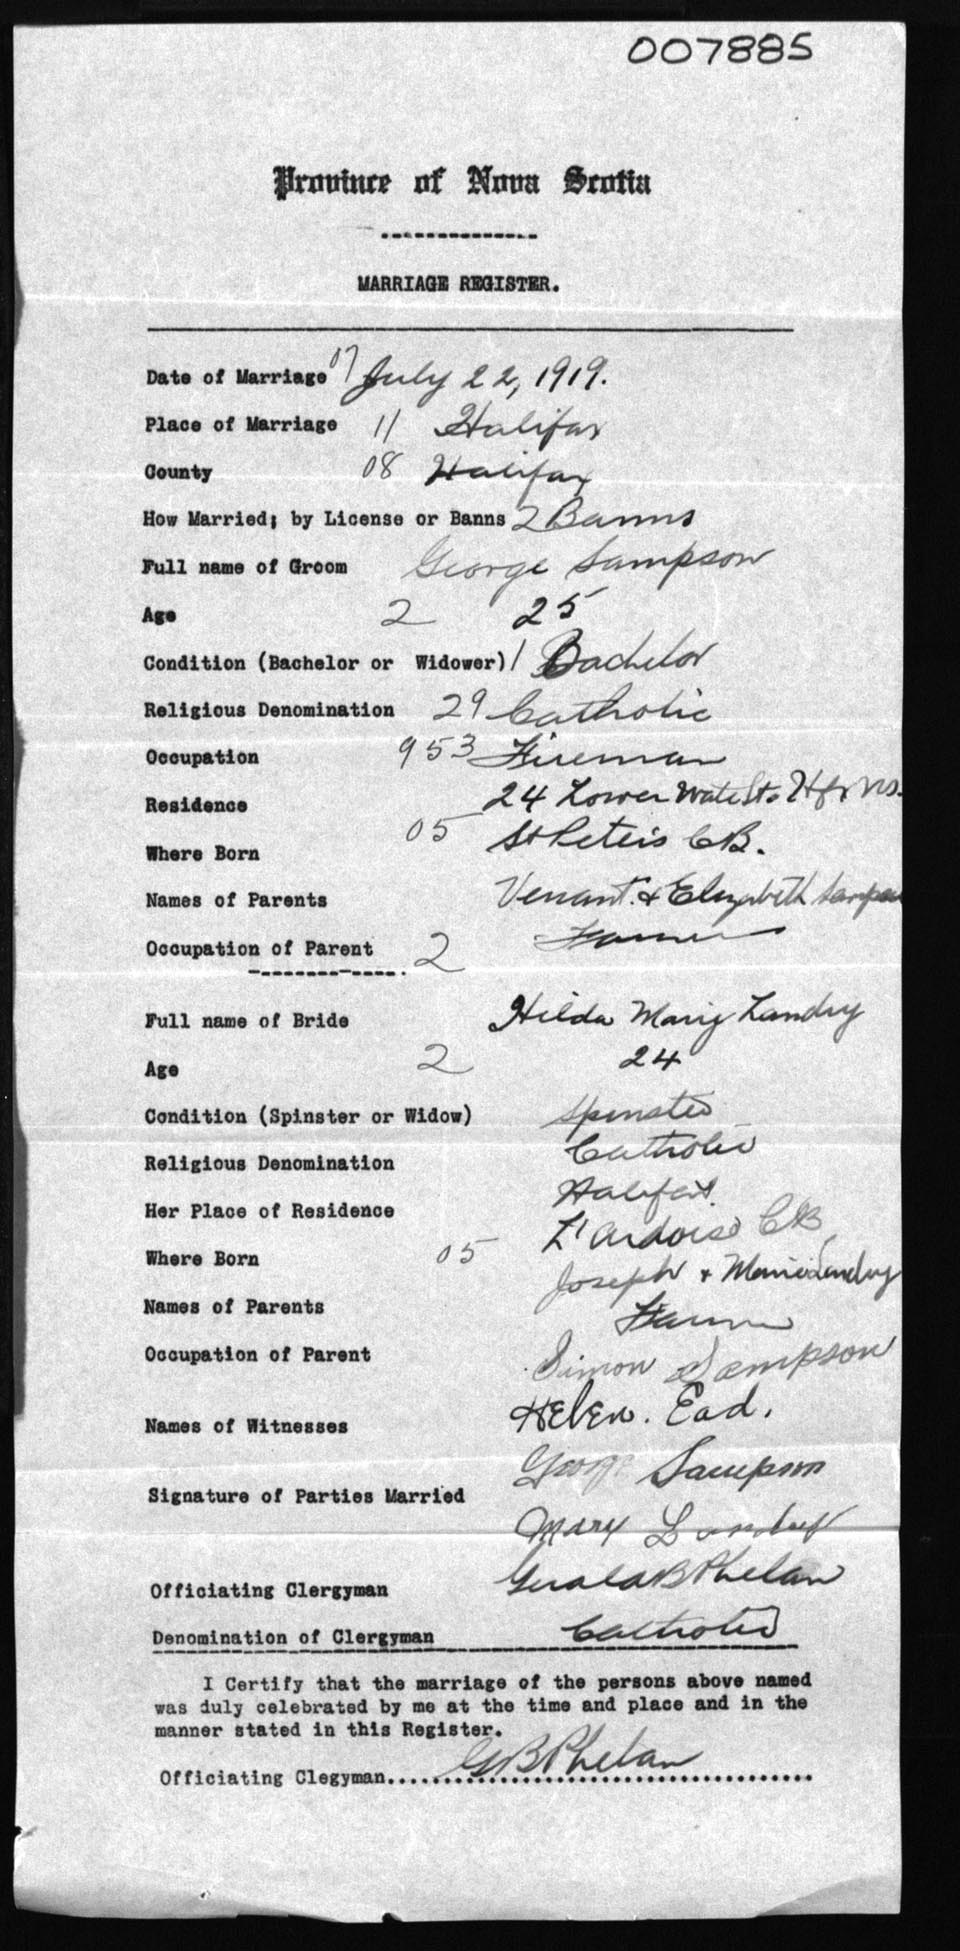 007885
Province of Nova Scotia
MARRIAGE REGISTER.
Date of Marriage 07 July 22, 1919.
Place of Marriage 11 Halifax
County 08 Halifax
How Married; by License or Banns 2 Banns
Full name of Groom George Sampson
Age 2 25
Condition (Bachelor or Widower) 1 Bachelor
Religious Denomination 29 Catholic
Occupation 953 Fireman
Residence 24 Lower Water St. Hfx NS.
Where Born 05 St Peters CB.
Names of Parents Venant & Elizabeth Sampson
Occupation of Parent 2 Farmer
Full name of Bride Hilda Mary Landry
Age 2 24
Condition (Spinster or Widow) Spinster
Religious Denomination Catholic
Her Place of Residence Halifax
Where Born 05 L'Ardoise CB
Names of Parents Joseph & Marie Landry
Occupation of Parent Farmer
Simon Sampson
Names of Witnesses Helen. Ead.
George Sampson
Signature of Parties Married
Mary Landry
Officiating Clergyman Gerald B Phelan
Denomination of Clergyman Catholic
I Certify that the marriage of the persons above named
was duly celebrated by me at the time and place and in the
manner stated in this Register.
Officiating Clegyman.... G B Phelan